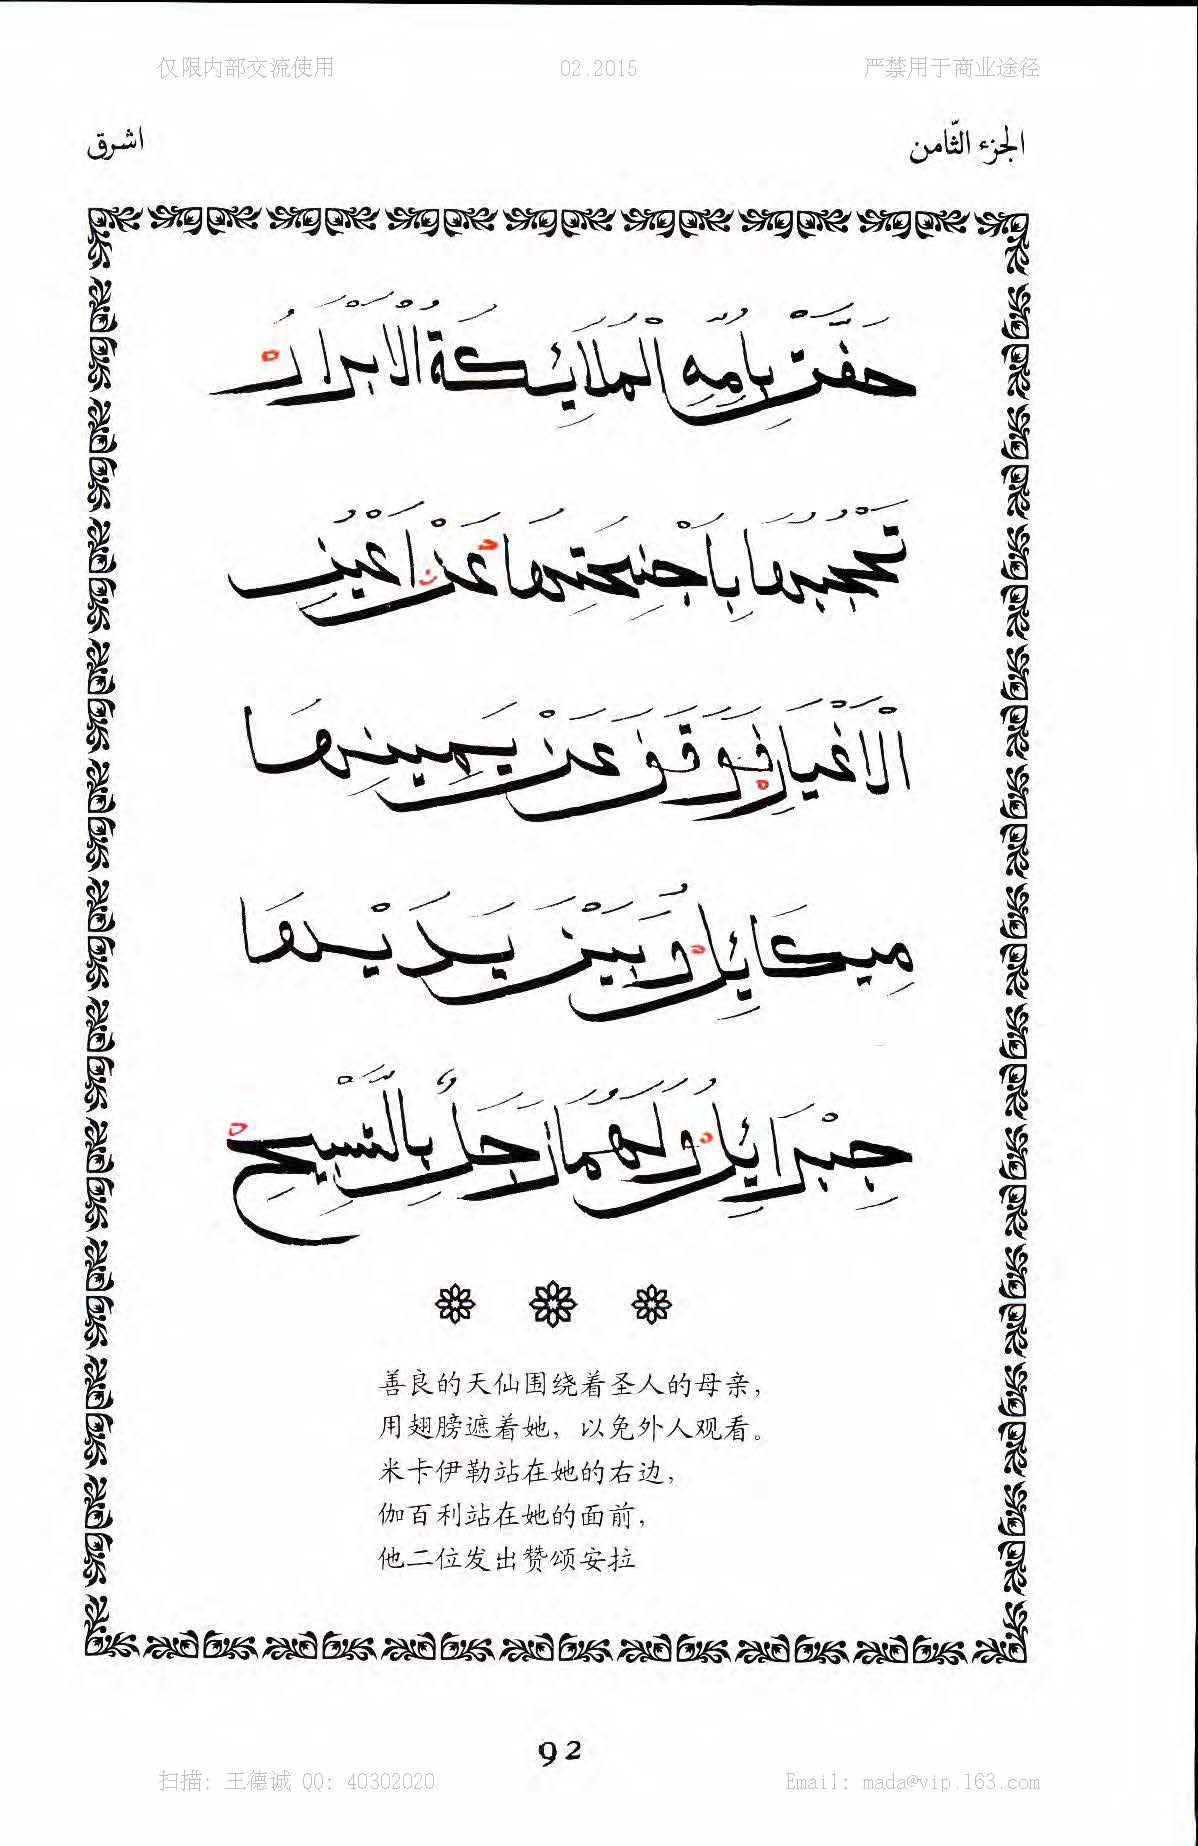 仅限内部交流使用 02.2015 严禁用于商业途径
الجزء الثّامن اشرق
حَفَّتْ بِاُمِّهِ الْمَلَائِكَةُ الْاَبْرَارُ
تَحْجُبُهَا بِاَجْنِحَتِهَا عَنْ اَعْيُنِ
الْاَغْيَارِ فَوَقَفَ عَنْ يَمِينِهَا
مِيكَائِلُ وَبَيْنَ يَدَيْهَا
جِبْرَائِلُ وَلَهُمَا زَجَلٌ بِالتَّسْبِيحِ
善良的天仙围绕着圣人的母亲，
用翅膀遮着她，以免外人观看。
米卡伊勒站在她的右边，
伽百利站在她的面前，
他二位发出赞颂安拉
92
扫描: 王德诚 QQ: 40302020 Email: mada@vip.163.com